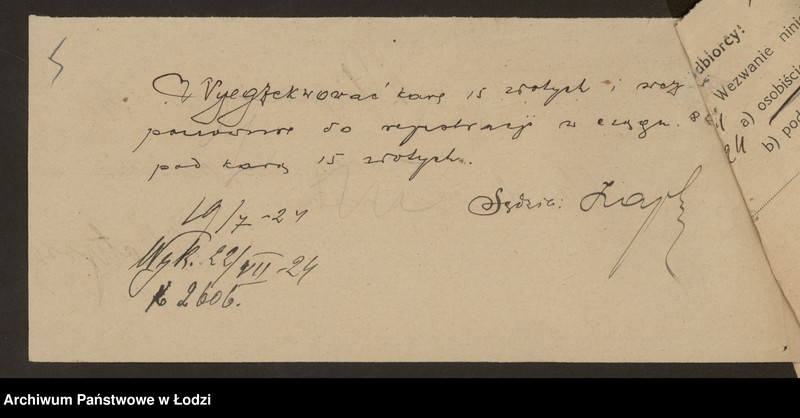 Wyegzekwować karę 15 złotych i wezw
ponownie do rejestracji w ciągu 8
pod karą 15 złotych.
19/7-24
Sędzia:
Wyk. 22/VII-24
2606.
dbiorcy:
Wezwanie nini
a) osobiście
b) pod
Archiwum Państwowe w Łodzi